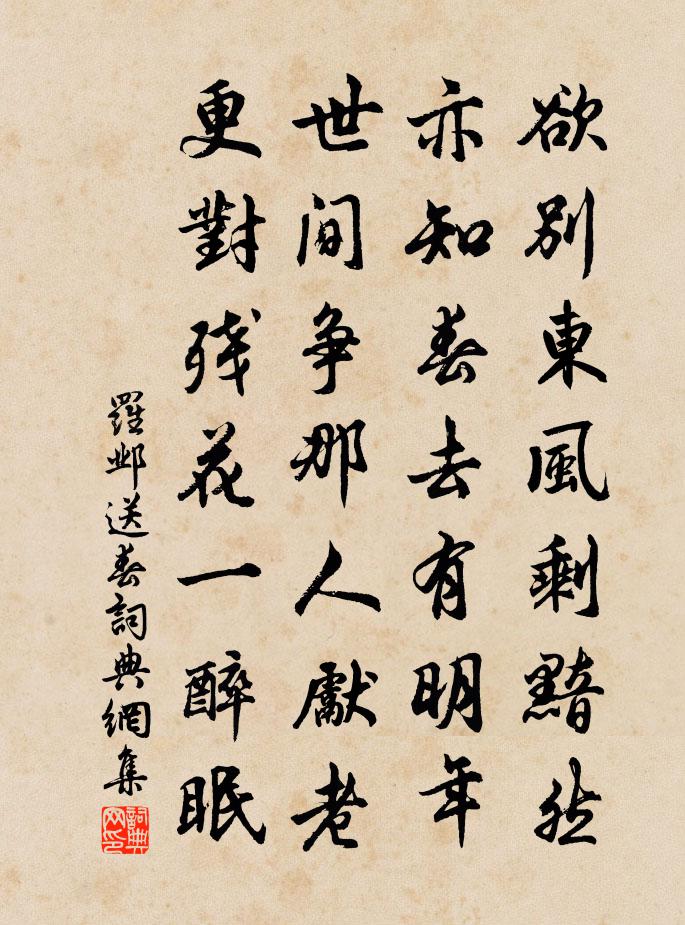 欲別東風剩黯然
亦知春去有明年
世间争那人獻老
更對残花一醉眠
羅邺送春詞典網集
詞典网印